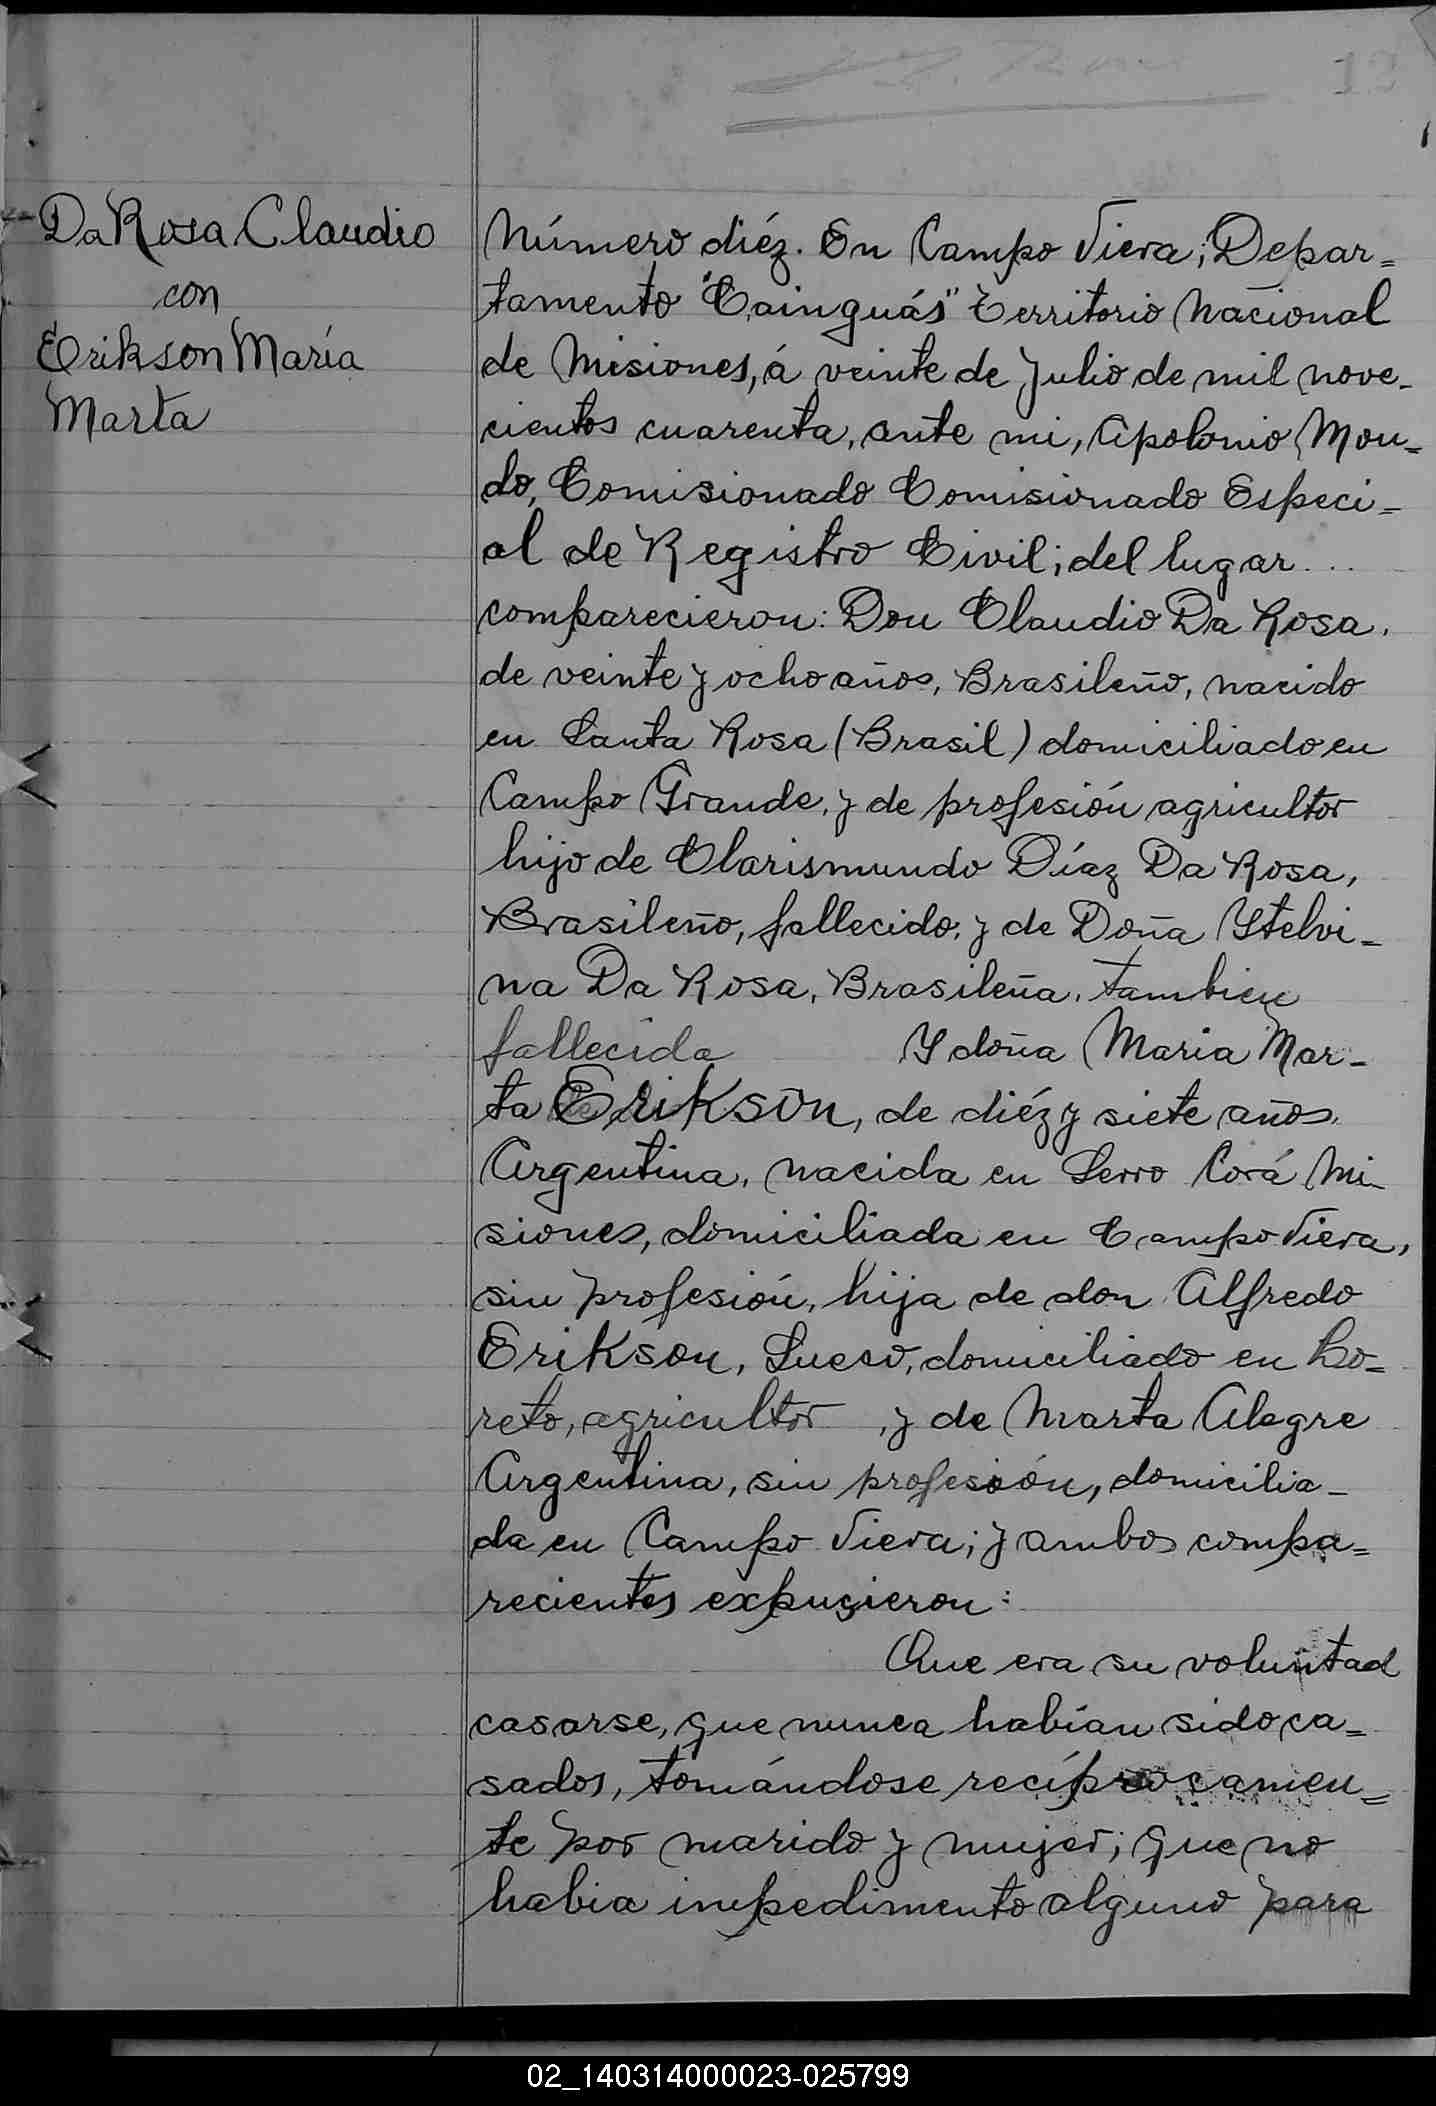 Da Rosa Claudio
con
Erikson María
Marta
Número diéz. En Campo Viera; Depar=
tamento "Cainguás" Territorio Nacional
de Misiones, á veinte de Julio de mil nove-
cientos cuarenta, ante mi, Apolonio Mou=
do, Comisionado Comisionado Especi=
al de Registro Civil; del lugar ...
comparecieron: Don Claudio Da Rosa.
de veinte y ocho años, Brasileño, nacido
en Santa Rosa (Brasil) domiciliado en
Campo Grande, y de profesión agricultor
hijo de Clarismundo Díaz Da Rosa,
Brasileño, fallecido, y de Doña Ytelvi=
na Da Rosa, Brasileña, tambien
fallecida Y doña Maria Mar-
ta Erikson, de diéz y siete años,
Argentina, nacida en Serro Corá Mi-
siones, domiciliada en Campo Viera,
sin profesión, hija de don Alfredo
Erikson, Sueco, domiciliado en Lo=
reto, agricultor, y de Marta Alegre
Argentina, sin profesión, domicilia-
da en Campo Viera; y ambos compa=
recientes expusieron:
Que era su voluntad
casarse, que nunca habían sido ca=
sados, tomándose recíprocamen=
te por marido y mujer; que no
habia impedimento alguno para
02_140314000023-025799